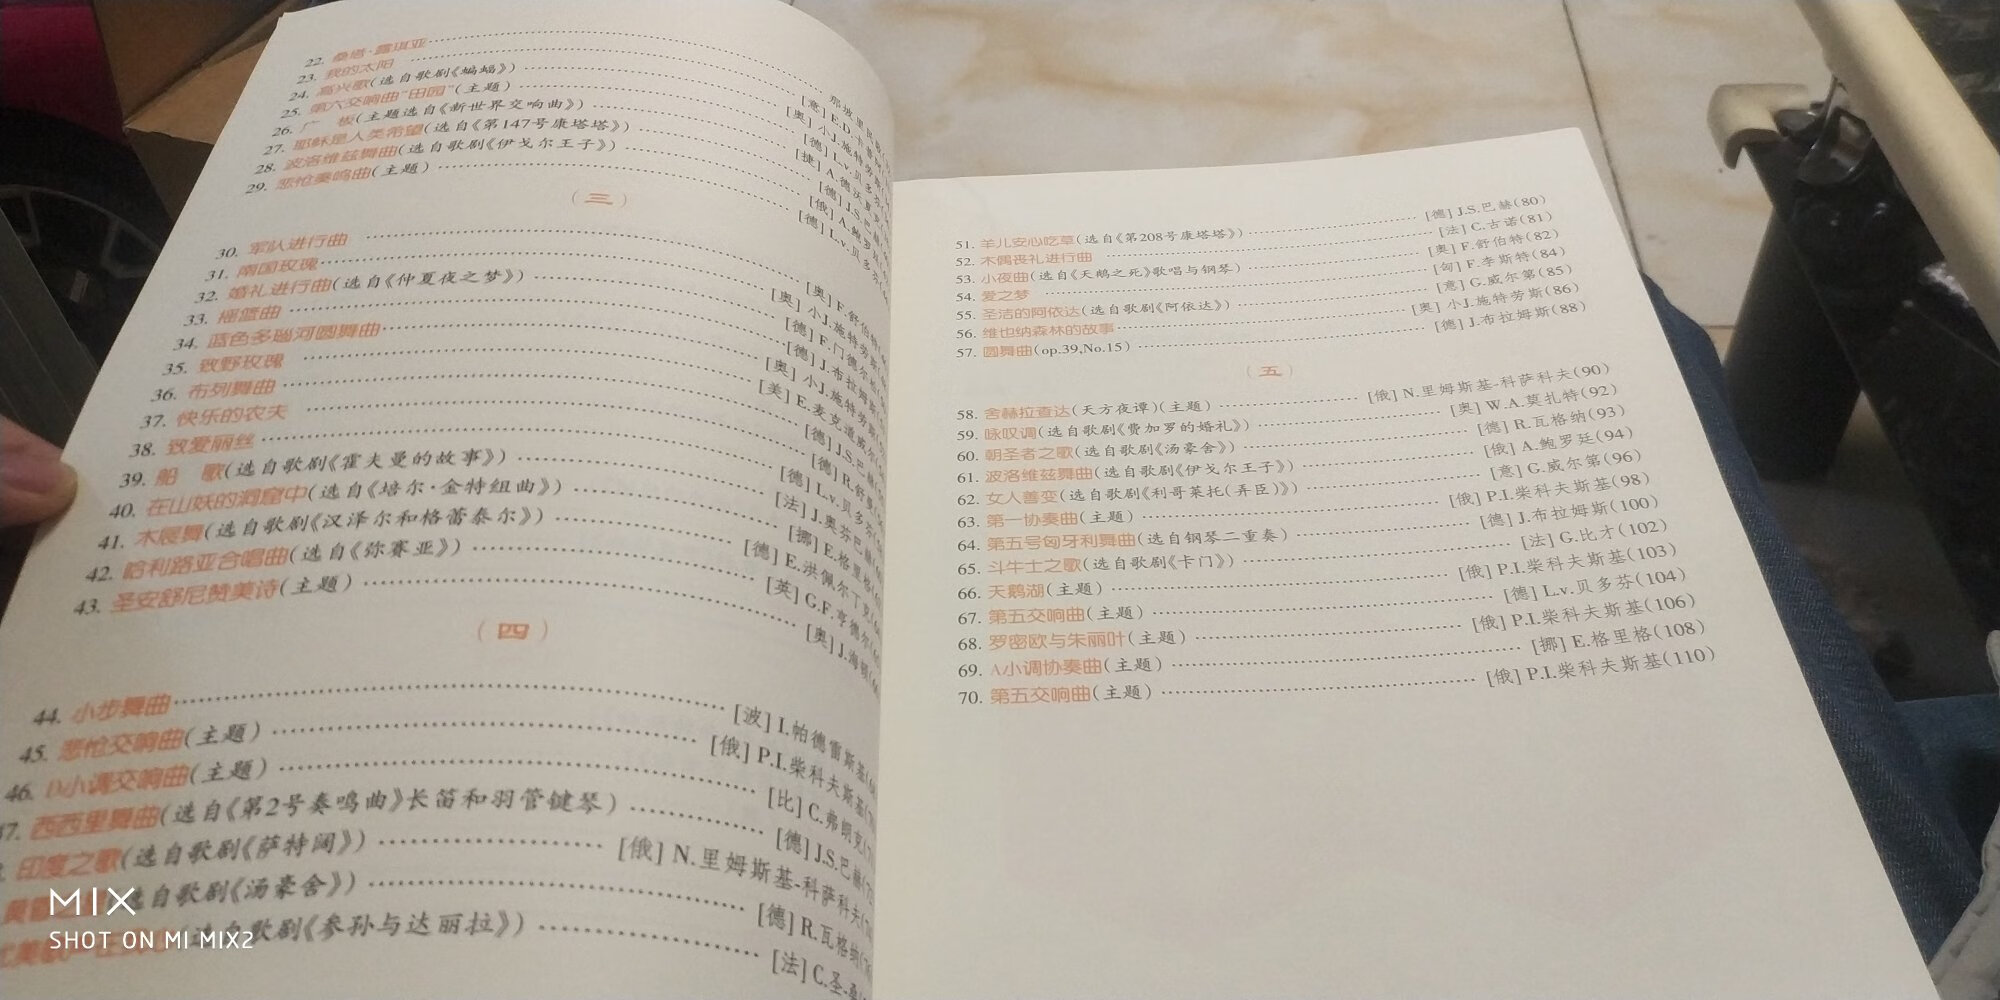 22. 桑塔·露琪亚 那坡里民歌
23. 我的太阳 [意] E.D.卡普阿
24. 高兴歌(选自歌剧《蝙蝠》) [奥] 小J.施特劳斯
25. 第六交响曲“田园”(主题) [德] L.v.贝多芬
26. 广 板(主题选自《新世界交响曲》) [捷] A.德沃夏克
27. 耶稣是人类希望(选自《第147号康塔塔》) [德] J.S.巴赫
28. 波洛维兹舞曲(选自歌剧《伊戈尔王子》) [俄] A.鲍罗廷
29. 悲怆奏鸣曲(主题) [德] L.v.贝多芬
(三)
30. 军队进行曲 [奥] F.舒伯特
31. 南国玫瑰 [奥] 小J.施特劳斯
32. 婚礼进行曲(选自《仲夏夜之梦》) [德] F.门德尔松
33. 摇篮曲 [德] J.布拉姆斯
34. 蓝色多瑙河圆舞曲 [奥] 小J.施特劳斯
35. 致野玫瑰 [美] E.麦克道威尔
36. 布列舞曲 [德] J.S.巴赫
37. 快乐的农夫 [德] R.舒曼
38. 致爱丽丝 [德] L.v.贝多芬
39. 船 歌(选自歌剧《霍夫曼的故事》) [法] J.奥芬巴赫
40. 在山妖的洞窟中(选自《培尔·金特组曲》) [挪] E.格里格
41. 木屐舞(选自歌剧《汉泽尔和格蕾泰尔》) [德] E.洪佩尔丁克
42. 哈利路亚合唱曲(选自《弥赛亚》) [英] G.F.亨德尔
43. 圣安舒尼赞美诗(主题) [奥] J.海顿
(四)
44. 小步舞曲 [波] I.帕德雷斯基
45. 悲怆交响曲(主题) [俄] P.I.柴科夫斯基
46. D小调交响曲(主题) [比] C.弗朗克
47. 西西里舞曲(选自《第2号奏鸣曲》长笛和羽管键琴) [德] J.S.巴赫
印度之歌(选自歌剧《萨特阔》) [俄] N.里姆斯基-科萨科夫
选自歌剧《汤豪舍》) [德] R.瓦格纳
选自歌剧《参孙与达丽拉》) [法] C.圣-桑
51. 羊儿安心吃草(选自《第208号康塔塔》) [德] J.S.巴赫(80)
52. 木偶丧礼进行曲 [法] C.古诺(81)
53. 小夜曲(选自《天鹅之死》歌唱与钢琴) [奥] F.舒伯特(82)
54. 爱之梦 [匈] F.李斯特(84)
55. 圣洁的阿依达(选自歌剧《阿依达》) [意] G.威尔第(85)
56. 维也纳森林的故事 [奥] 小J.施特劳斯(86)
57. 圆舞曲(op.39,No.15) [德] J.布拉姆斯(88)
(五)
58. 舍赫拉查达(天方夜谭)(主题) [俄] N.里姆斯基-科萨科夫(90)
59. 咏叹调(选自歌剧《费加罗的婚礼》) [奥] W.A.莫扎特(92)
60. 朝圣者之歌(选自歌剧《汤豪舍》) [德] R.瓦格纳(93)
61. 波洛维兹舞曲(选自歌剧《伊戈尔王子》) [俄] A.鲍罗廷(94)
62. 女人善变(选自歌剧《利哥莱托(弄臣)》) [意] G.威尔第(96)
63. 第一协奏曲(主题) [俄] P.I.柴科夫斯基(98)
64. 第五号匈牙利舞曲(选自钢琴二重奏) [德] J.布拉姆斯(100)
65. 斗牛士之歌(选自歌剧《卡门》) [法] G.比才(102)
66. 天鹅湖(主题) [俄] P.I.柴科夫斯基(103)
67. 第五交响曲(主题) [德] L.v.贝多芬(104)
68. 罗密欧与朱丽叶(主题) [俄] P.I.柴科夫斯基(106)
69. A小调协奏曲(主题) [挪] E.格里格(108)
70. 第五交响曲(主题) [俄] P.I.柴科夫斯基(110)
MIX
SHOT ON MI MIX2